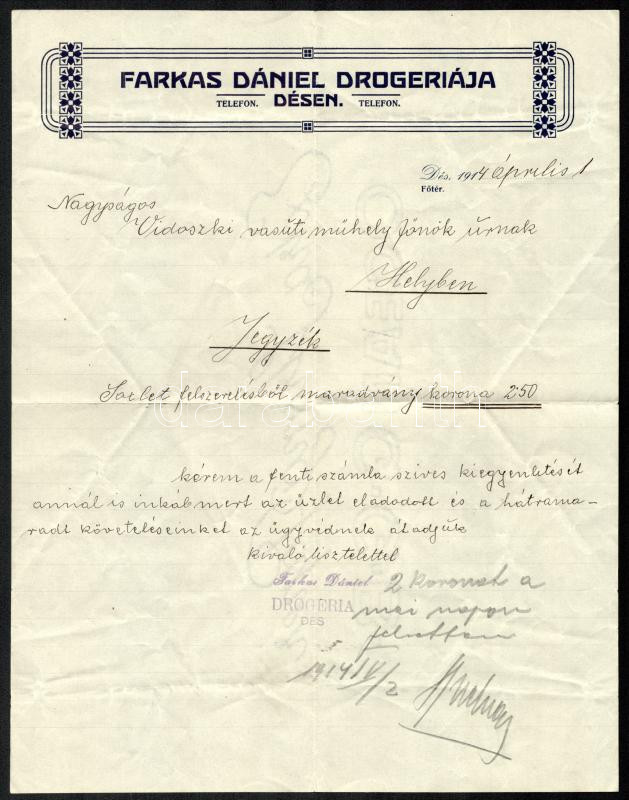 FARKAS DÁNIEL DROGERIÁJA
TELEFON. DÉSEN. TELEFON.
Dés, 1914 április 1
Főtér.
Nagyságos
Vidoszki vasúti műhely főnök úrnak
Helyben
Jegyzék
felszerelésből maradvány korona 2.50
kérem a fenti számla szives kiegyenlitését
annál is inkáb mert az űzlet eladodott és a hátrama-
radt követeléseinket az ügyvédnek átadjúk
kiváló tisztelettel
Farkas Dániel
DROGERIA
DÉS
2 koronát a
mai napon
felvettem
1914 IV/2